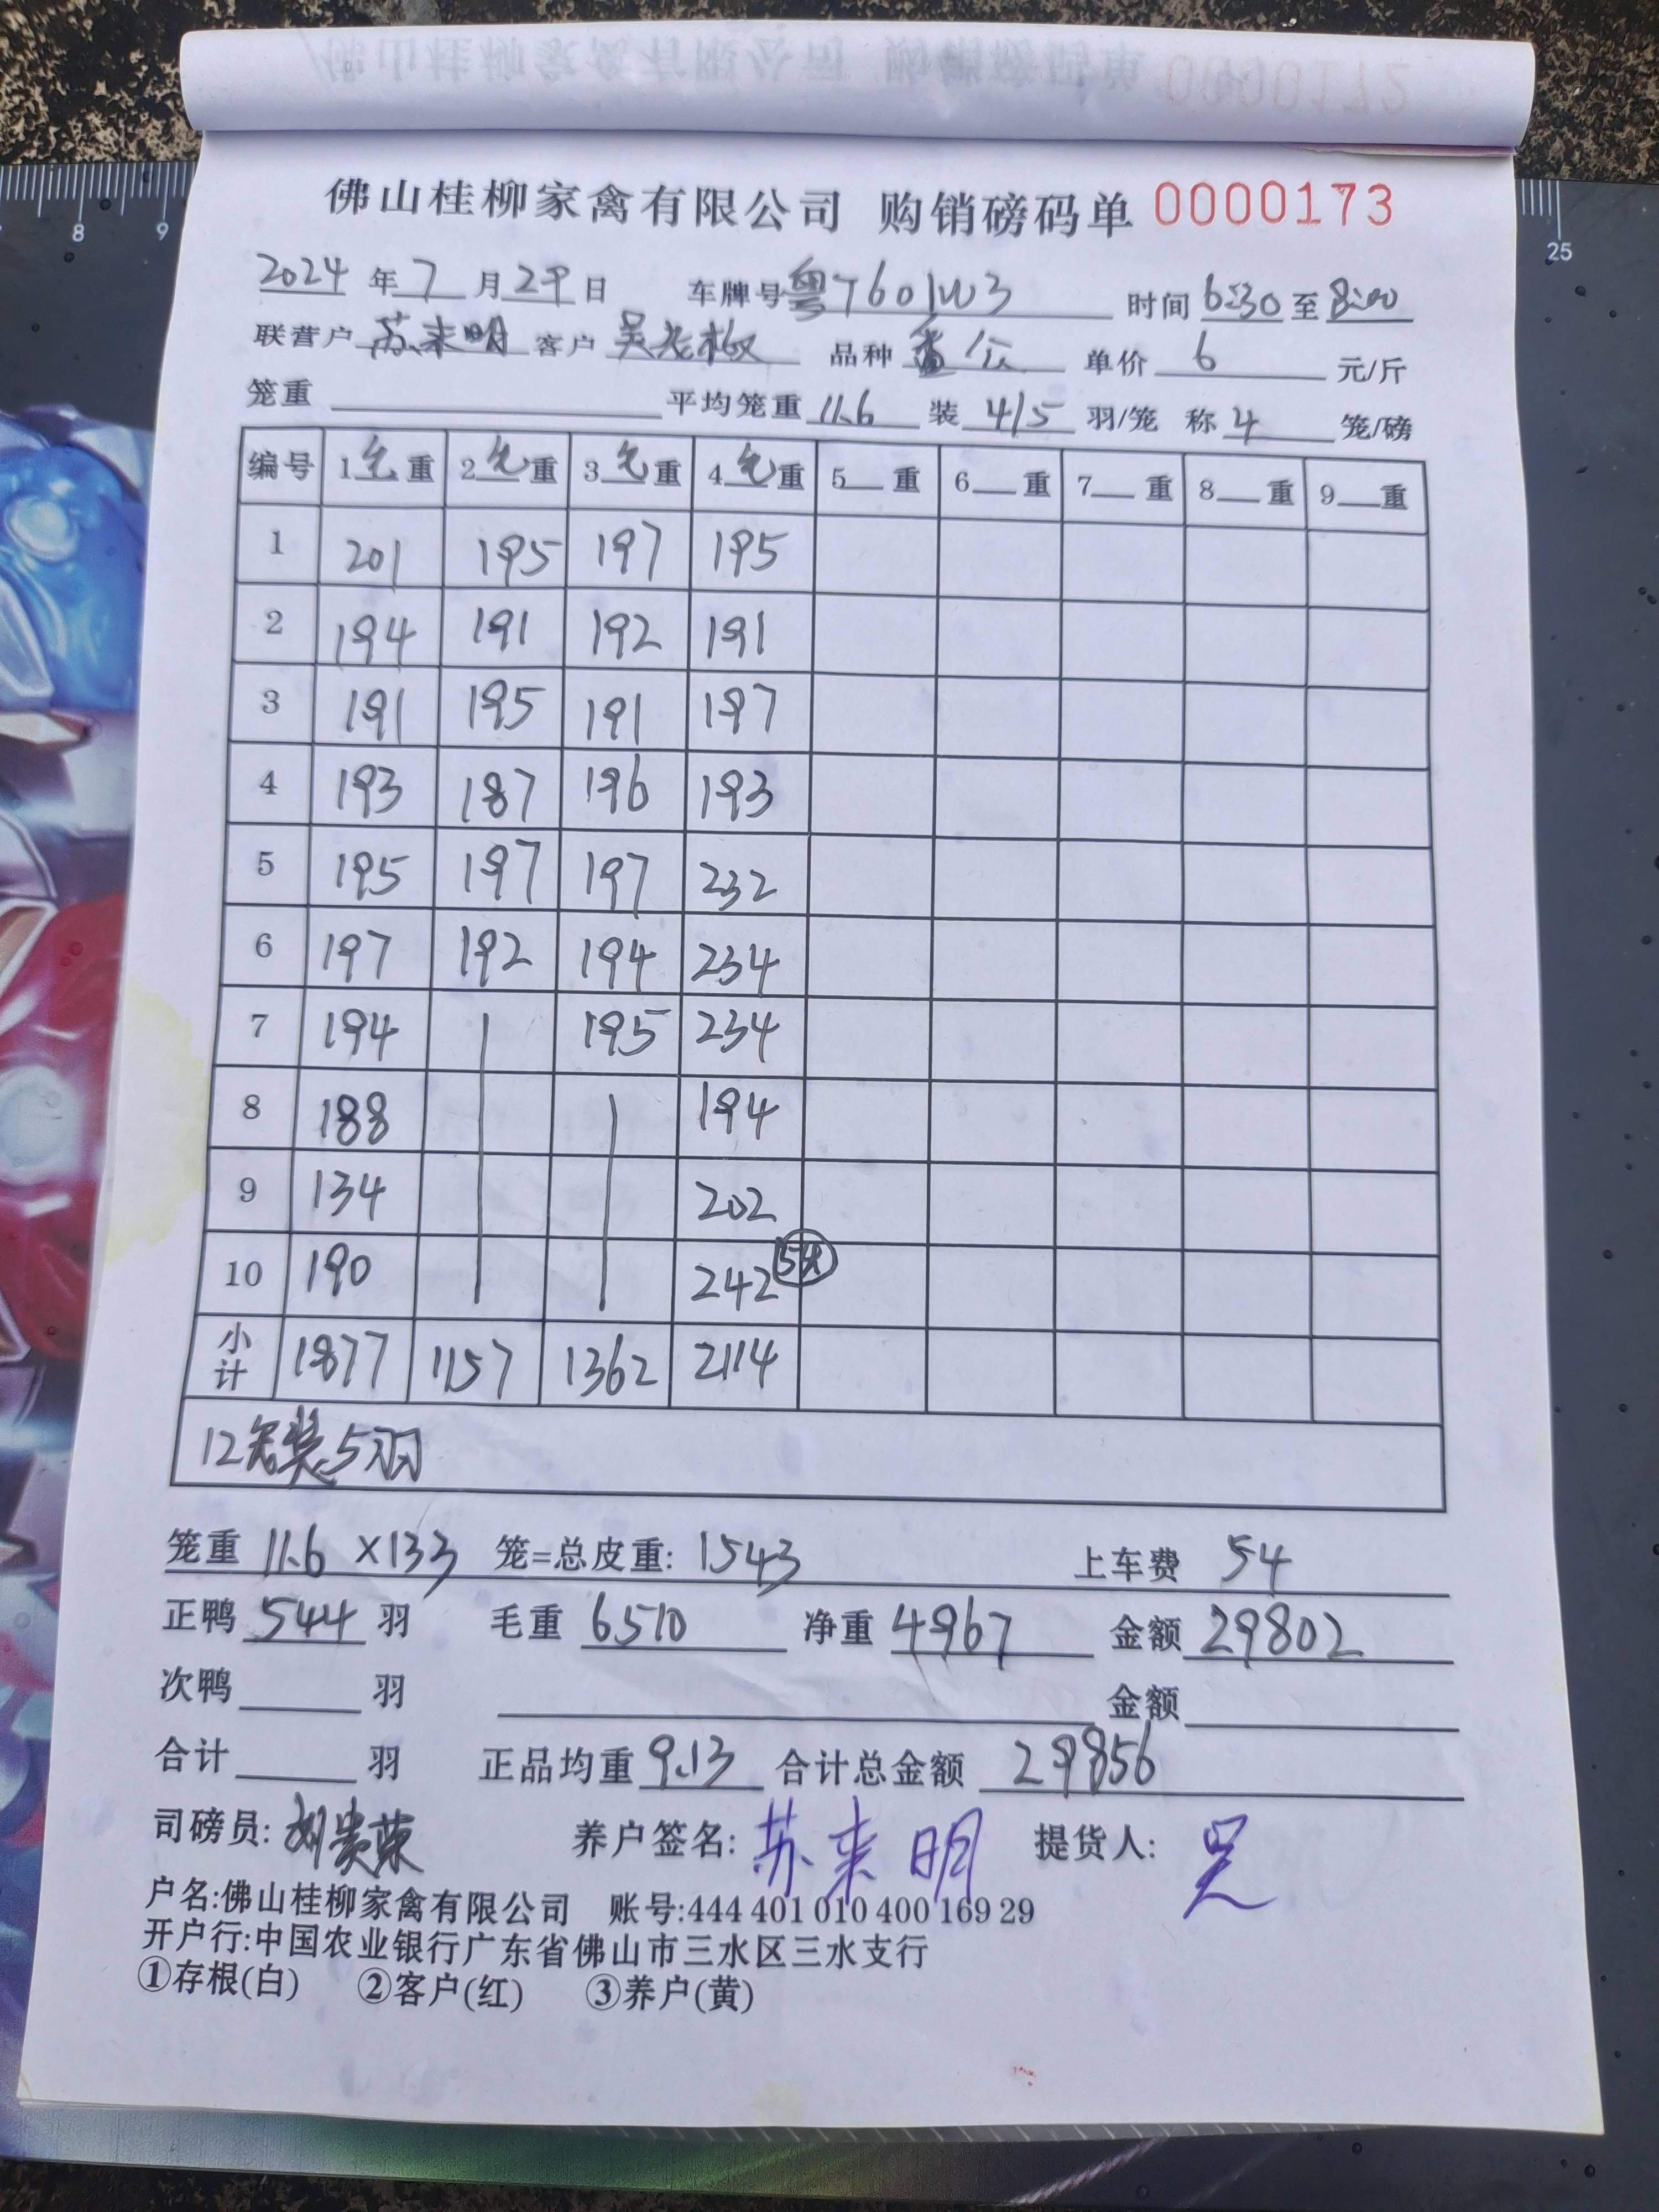 佛山桂柳家禽有限公司 购销磅码单 0000173
2024 年 7 月 29 日 车牌号 粤T601W3 时间 6:30 至 8:00
联营户 苏来明 客户 吴老板 品种 番公 单价 6 元/斤
笼重 平均笼重 11.6 装 4/5 羽/笼 称 4 笼/磅
编号 1 毛 重 2 毛 重 3 毛 重 4 毛 重 5 重 6 重 7 重 8 重 9 重
1 201 195 197 195
2 194 191 192 191
3 191 195 191 197
4 193 187 196 193
5 195 197 197 232
6 197 192 194 234
7 194 195 234
8 188 194
9 134 202
10 190 242
小计 1877 1157 1362 2114
12笼装5羽
笼重 11.6 ×133 笼=总皮重: 1543 上车费 54
正鸭 544 羽 毛重 6510 净重 4967 金额 29802
次鸭 羽 金额
合计 羽 正品均重 9.13 合计总金额 29856
司磅员: 养户签名: 苏来明 提货人: 吴
户名:佛山桂柳家禽有限公司 账号:444 401 010 400 169 29
开户行:中国农业银行广东省佛山市三水区三水支行
①存根(白) ②客户(红) ③养户(黄)
8 9 25